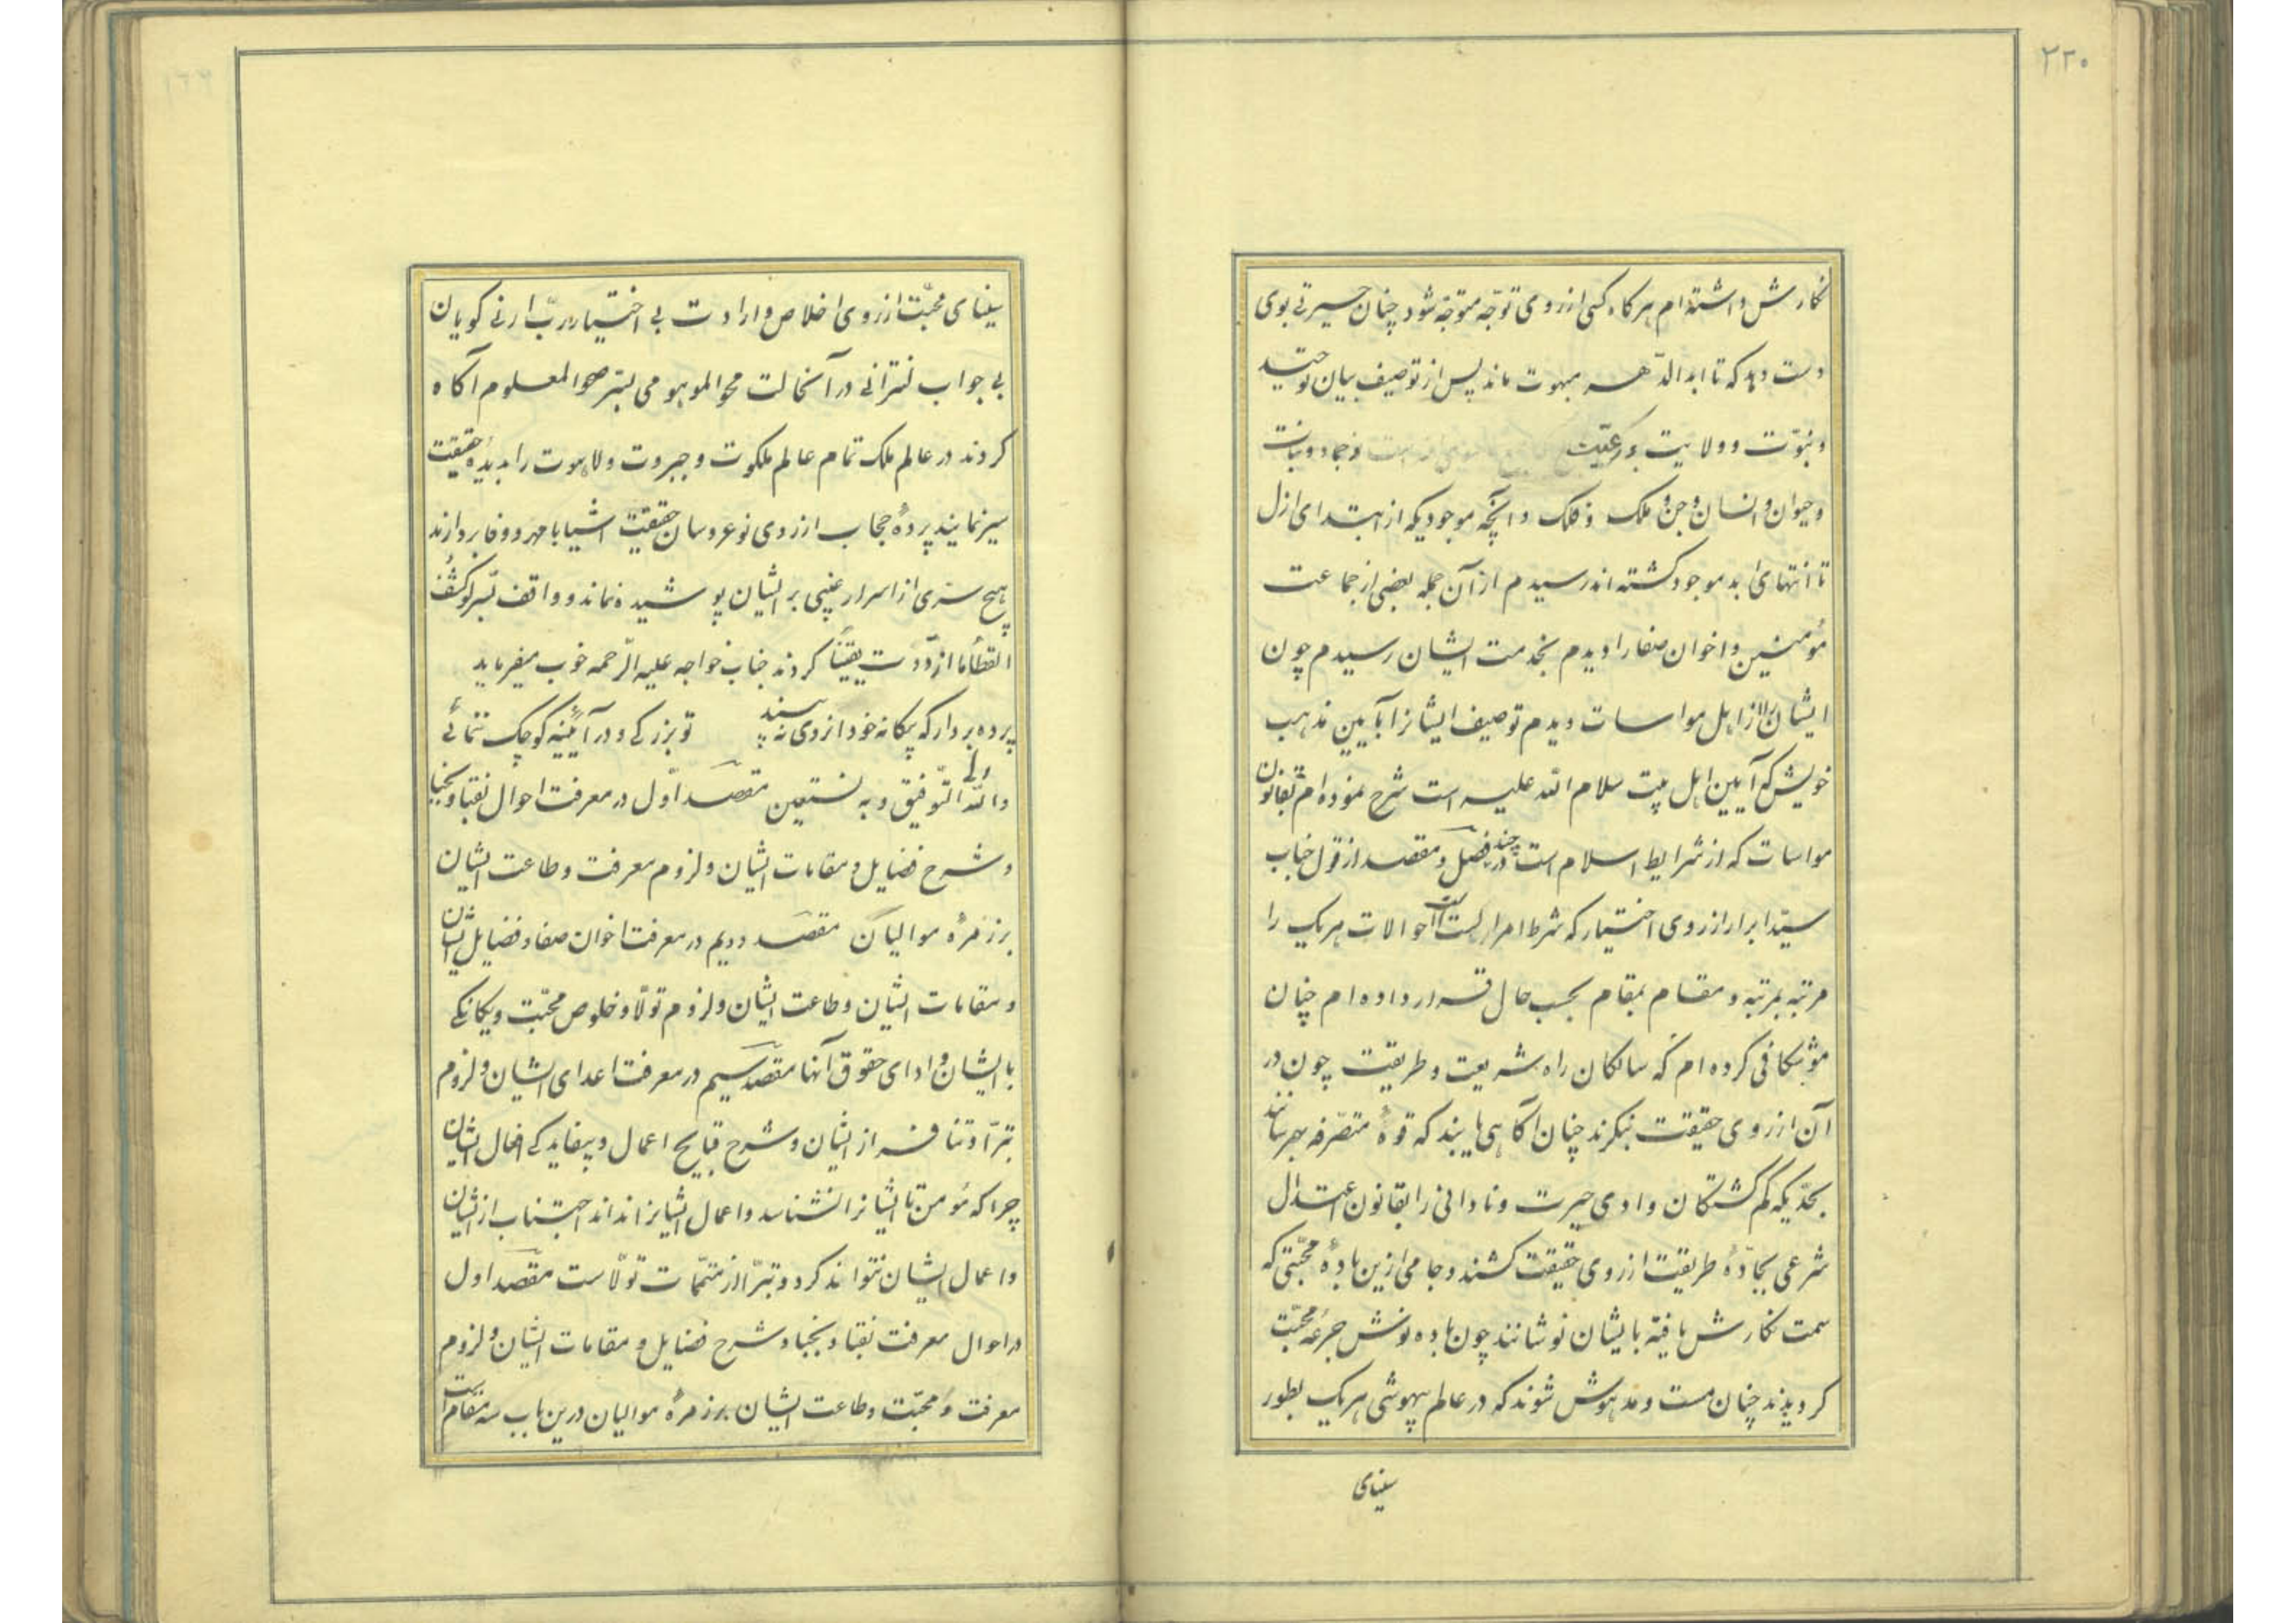 ۲۲۰
نگارش داشته‌ام هرگاه کسی از روی توجّه متوجّه شود چنان حیرتی بوی
دست دهد که تا ابد الدّهر مبهوت ماند پس از توصیف بیان توحید
و نبوّت و ولایت و رعیّت و جماد و نبات
و حیوان و انسان و جن و ملک و فلک و آنچه موجودیکه از ابتدای ازل
تا انتهای ابد موجود گشته‌اند رسیدم از آن جمله بعضی از جماعت
مؤمنین و اخوان صفا را دیدم بخدمت ایشان رسیدم چون
ایشان را از اهل مواسات دیدم توصیف ایشانرا بآیین مذهب
خویش که آیین اهل بیت سلام الله علیه است شرح نموده‌ام بقانون
مواسات که از شرایط اسلام است در چند فصل و مقصد از قول جناب
سیّد ابرار از روی اختیار که شرط احرار است احوالات هر یک را
مرتبه بمرتبه و مقام بمقام بحسب حال قرار داده‌ام چنان
موشکافی کرده‌ام که سالکان راه شریعت و طریقت چون در
آن از روی حقیقت بنگرند چنان آگاهی یابند که قوهٔ متصرّفه بهرسانند
بحدّیکه گم گشتگان وادی حیرت و نادانی را بقانون عتدال
شرعی بجادّهٔ طریقت از روی حقیقت کشند و جامی ازین بادهٔ محبّتی که
سمت نگارش یافته بایشان نوشانند چون باده نوش جرعهٔ محبّت
گردیدند چنان مست و مدهوش شوند که در عالم بیهوشی هر یک بطور
سینای
سینای محبّت از روی اخلاص و ارادت بی اختیار ربّ ارنی گویان
بی جواب لنترانی در آنحالت محو الموهومی بسّر صحو المعلوم آگاه
کردند در عالم ملک تمام عالم ملکوت و جبروت و لاهوت را بدیدهٔ حقیقت
سیر نمایند پردهٔ حجاب از روی نوعروسان حقیقت اشیا با مهر و وفا بردارند
هیچ سرّی از اسرار غیبی بر ایشان پوشیده نماند و واقف بسّر لو کشف
الغطأ ما ازددت یقیناً کردند جناب خواجه علیه الرّحمه خوب میفرماید
پرده بردار که بیگانه خود از روی نه بیند تو بزرگی و در آیینه کوچک ننمائی
والله ولی التّوفیق و به نستعین مقصد اوّل در معرفت احوال نقبا و نجبا
و شرح فضایل و مقامات ایشان و لزوم معرفت و طاعت ایشان
بر زمرهٔ موالیان مقصد دویم در معرفت اخوان صفا و فضایل ایشان
و مقامات ایشان و طاعت ایشان و لزوم تولّا و خلوص محبّت و یکانکی
با ایشان و ادای حقوق آنها مقصد سیم در معرفت اعدای ایشان و لزوم
تبرّا و تنافر از ایشان و شرح قبایح اعمال و بیفایدگی افعال ایشان
چرا که مؤمن تا ایشانرا نشناسد و اعمال ایشانرا نداند اجتناب از ایشان
و اعمال ایشان نتواند کرد و تبرّا از متمّمات تولّاست مقصد اول
در احوال معرفت نقبا و نجبا و شرح فضایل و مقامات ایشان و لزوم
معرفت و محبّت و طاعت ایشان بر زمرهٔ موالیان درین باب سه مقام است